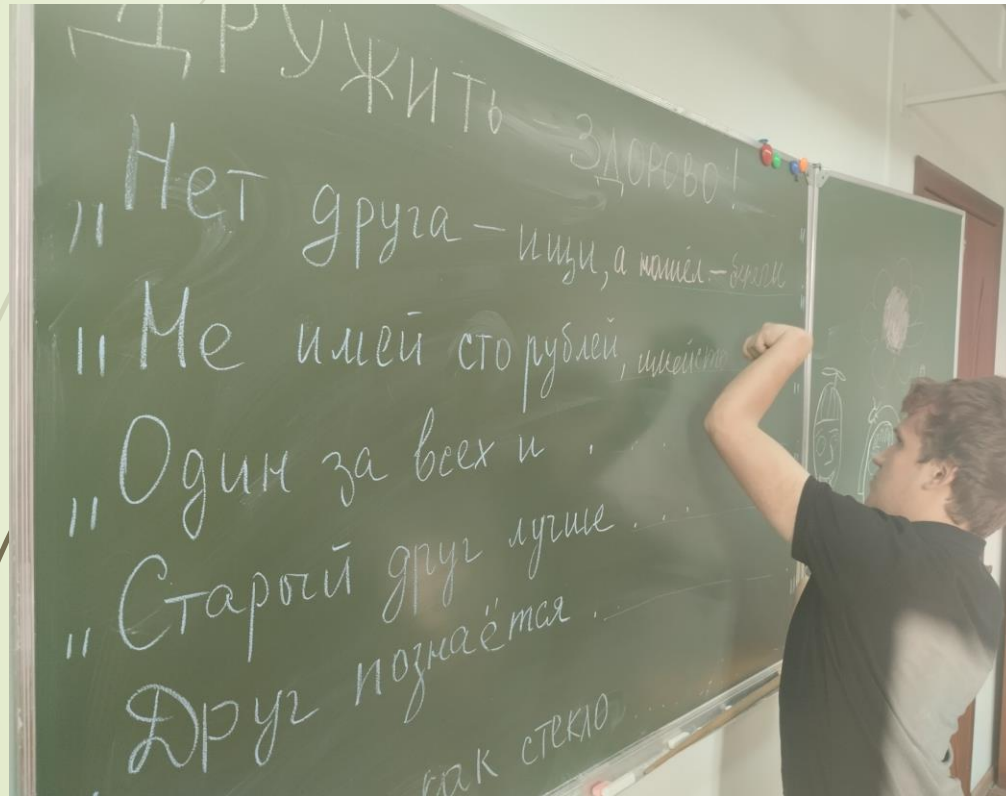 ДРУЖИТЬ ЗДОРОВО!
„Нет друга – ищи, а нашёл – береги
„Не имей сто рублей, имей сто
„Один за всех и . . .
„Старый друг лучше . . . .
Друг познаётся . . . .
как стекло . . . .